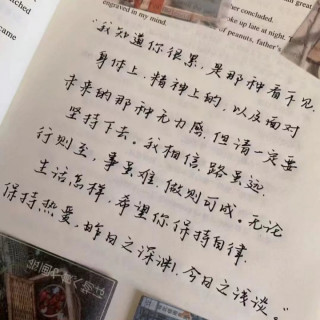 engraved in my mind.
er concluded.
oke up late at night.
of peanuts, father's
came
"我知道你很累,是那种看不见,
身体上,精神上的,以及面对
未来的那种无力感,但请一定要
坚持下去。我相信路虽远,
行则至,事虽难,做则可成。无论
生活怎样,希望你保持自律,
保持热爱,昨日之深渊,今日之浅谈。"